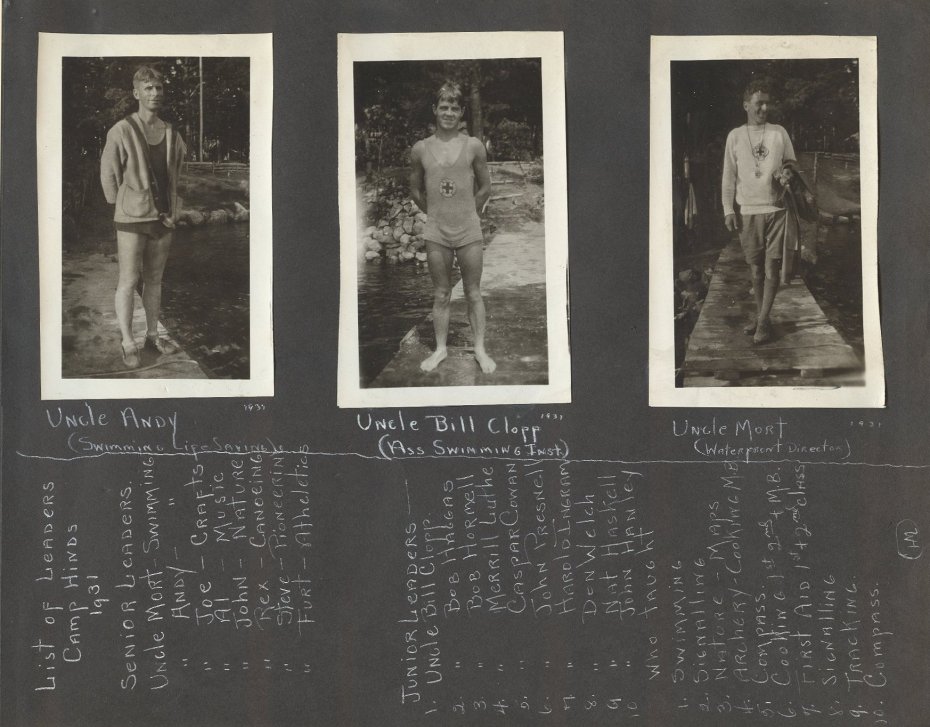 Uncle Andy 1931
(Swimming Life Saving)
Uncle Bill Clopp 1931
(Ass Swimming Inst.)
Uncle Mort 1931
(Waterfront Director)
List of Leaders
Camp Hinds
1931
Senior Leaders.
Uncle Mort - Swimming
" Andy - "
" Joe - Crafts
" Al - Music
" John - Nature
" Rex - Canoeing
" Steve - Pioneering
" Furt - Athletics
Junior Leaders —
1. Uncle Bill Clopp
2. " Bob Hallgas
3. " Bob Hormell
4. " Merrill Luthe
5. " Caspar Cowan
6. " John Presnell
7. " Harold Ingram
8. " Don Welch
9. " Nat Haskell
10 " John Hanley
Who taught
1. Swimming
2. Signalling
3. Nature - Maps
4. Archery - Cooking MB
5. Compass. 2nd + M.B.
6. Cooking 1st
7. First Aid 1st + 2nd class
8. Signalling
9. Tracking.
10. Compass.